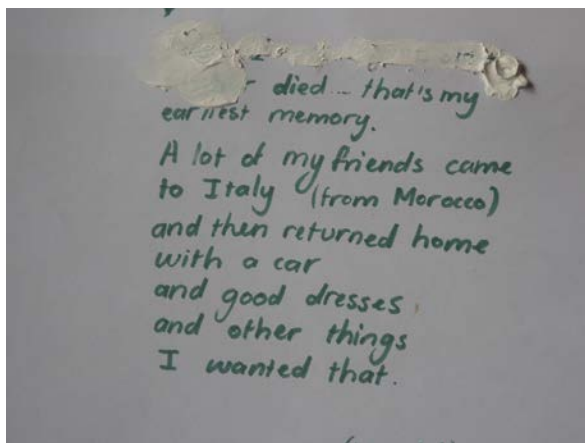 died... that's my
earliest memory.
A lot of my friends came
to Italy (from Morocco)
and then returned home
with a car
and good dresses
and other things
I wanted that.